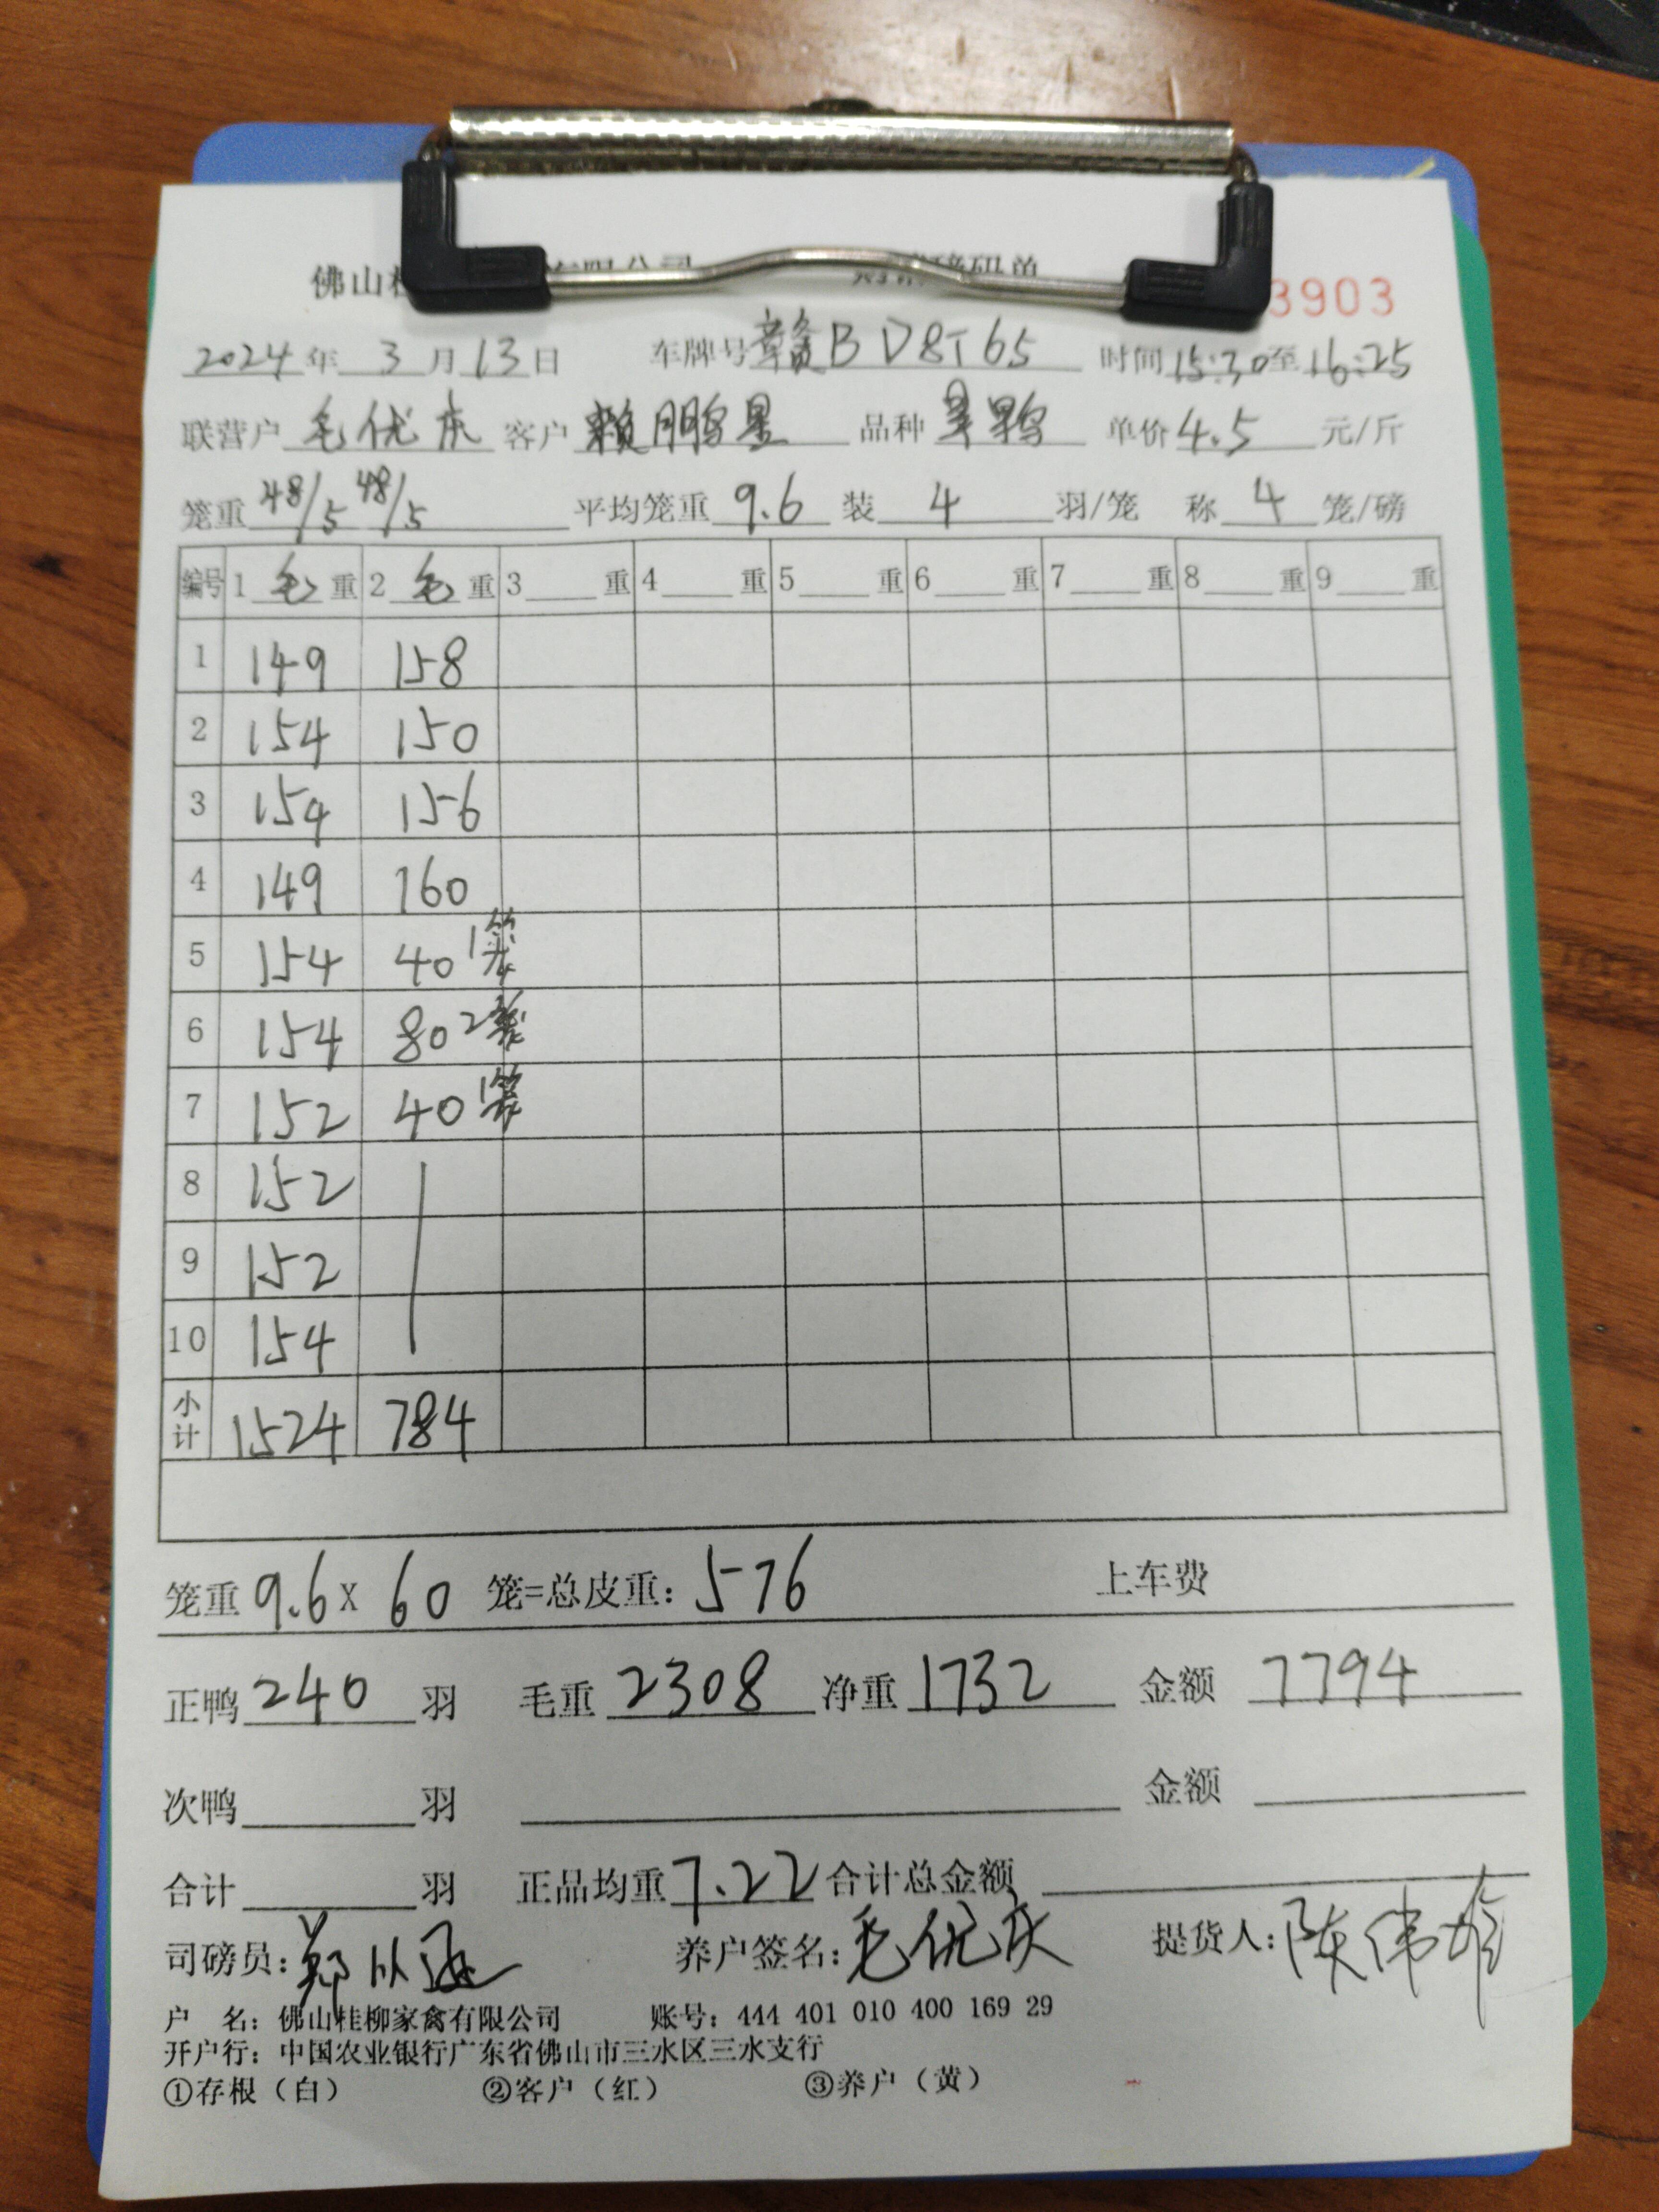 佛山 有限公司 磅码单 3903
2024年 3 月 13 日 车牌号 赣B D8T65 时间 15:30 至 16:25
联营户 毛优庆 客户 赖鹏星 品种 单价 4.5 元/斤
笼重 48/5 48/5 平均笼重 9.6 装 4 羽/笼 称 4 笼/磅
编号 1 毛 重 2 毛 重 3 重 4 重 5 重 6 重 7 重 8 重 9 重
1 149 158
2 154 150
3 154 156
4 149 160
5 154 40 1笼
6 154 80 2笼
7 152 40 1笼
8 152
9 152
10 154
小计 1524 784
笼重 9.6 x 60 笼=总皮重: 576 上车费
正鸭 240 羽 毛重 2308 净重 1732 金额 7794
次鸭 羽 金额
合计 羽 正品均重 7.22 合计总金额
司磅员: 郑 养户签名: 毛优庆 提货人: 陈伟雄
户 名: 佛山桂柳家禽有限公司 账号: 444 401 010 400 169 29
开户行: 中国农业银行广东省佛山市三水区三水支行
①存根（白） ②客户（红） ③养户（黄）